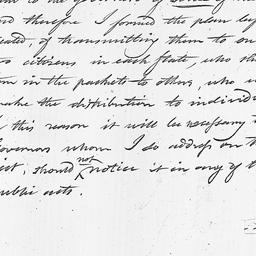 and therefore I formed the plan
of transmitting them to
citizens in each state, who
in the packets to others, who
make the distribution to individu
this reason it will be necessary
Governors whom I do address on th
ject, should not notice it in any of th
public acts.